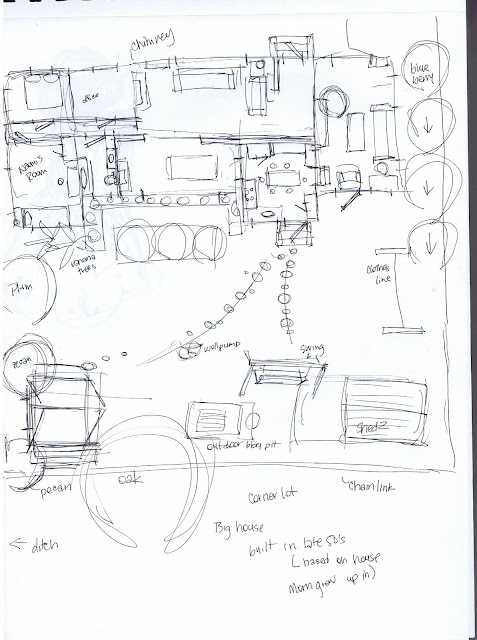 chimney
blue
berry
Naomi's
Room
banana
trees
Plum
clothes
line
pecan
wellpump
swing
outdoor bbq pit
Shed 2
pecan
oak
chainlink
corner lot
Big house
← ditch
built in late 50's
(based on house
Mom grew up in)